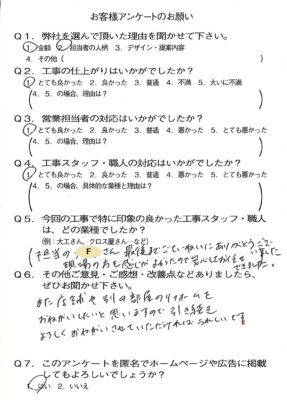 お客様アンケートのお願い
Q1．弊社を選んで頂いた理由を聞かせて下さい。
1．金額 2．担当者の人柄 3．デザイン・提案内容
4．その他（ ）
Q2．工事の仕上がりはいかがでしたか？
1．とても良かった 2．良かった 3．普通 4．不満 5．大いに不満
4．5．の場合、理由は？
Q3．営業担当者の対応はいかがでしたか？
1．とても良かった 2．良かった 3．普通 4．悪かった 5．とても悪かった
4．5．の場合、理由は？
Q4．工事スタッフ・職人の対応はいかがでしたか？
1．とても良かった 2．良かった 3．普通 4．悪かった 5．とても悪かった
4．5．の場合、具体的な業種と理由は？
Q5．今回の工事で特に印象の良かった工事スタッフ・職人
は、どの業種でしたか？
（例：大工さん、クロス屋さん…など）
担当のFさん最後までていねいにありがとうございました
現場の方も感じがよかったので安心しておまかせできました。
Q6．その他ご意見・ご感想・改善点などありましたら、
ぜひお聞かせ下さい。
また店舗や別の部屋のリフォームを
おねがいしたいと思いますので引き続き
よろしくおねがいさせていただければうれしいです
Q7．このアンケートを匿名でホームページや広告に掲載
してもよろしいでしょうか？
1．はい 2．いいえ